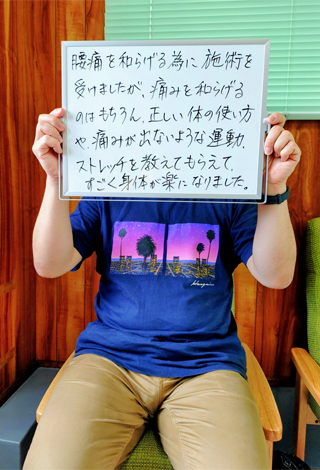 腰痛を和らげる為に施術を
受けましたが、痛みを和らげる
のはもちろん、正しい体の使い方
や、痛みが出ないような運動、
ストレッチを教えてもらえて、
すごく身体が楽になりました。